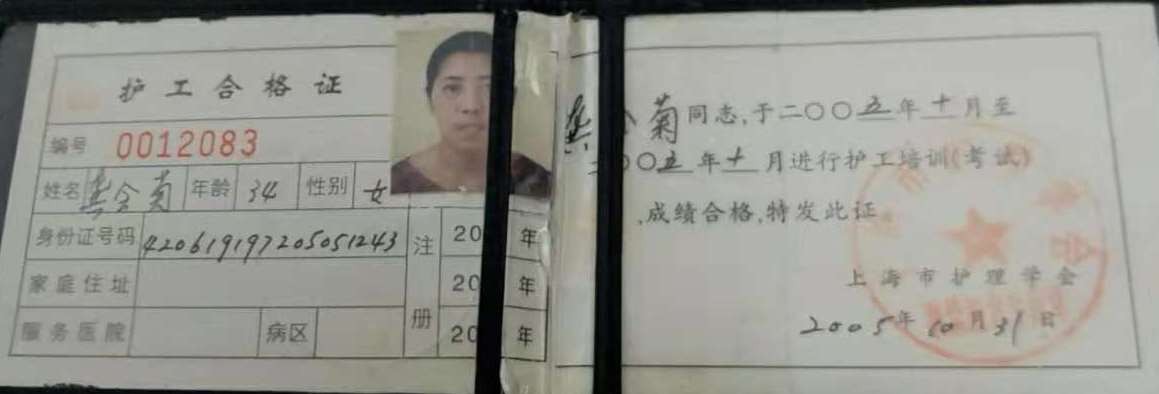 护工合格证
编号 0012083
姓名 龚 菊 年龄 34 性别 女
身份证号码 420619197205051243 注 20 年
家庭住址 20 年
服务医院 病区 册 20 年
龚 菊同志,于二〇〇五年十月至
〇〇五年十月进行护工培训(考试)
,成绩合格,特发此证
上海市护理学会
2005年10月31日